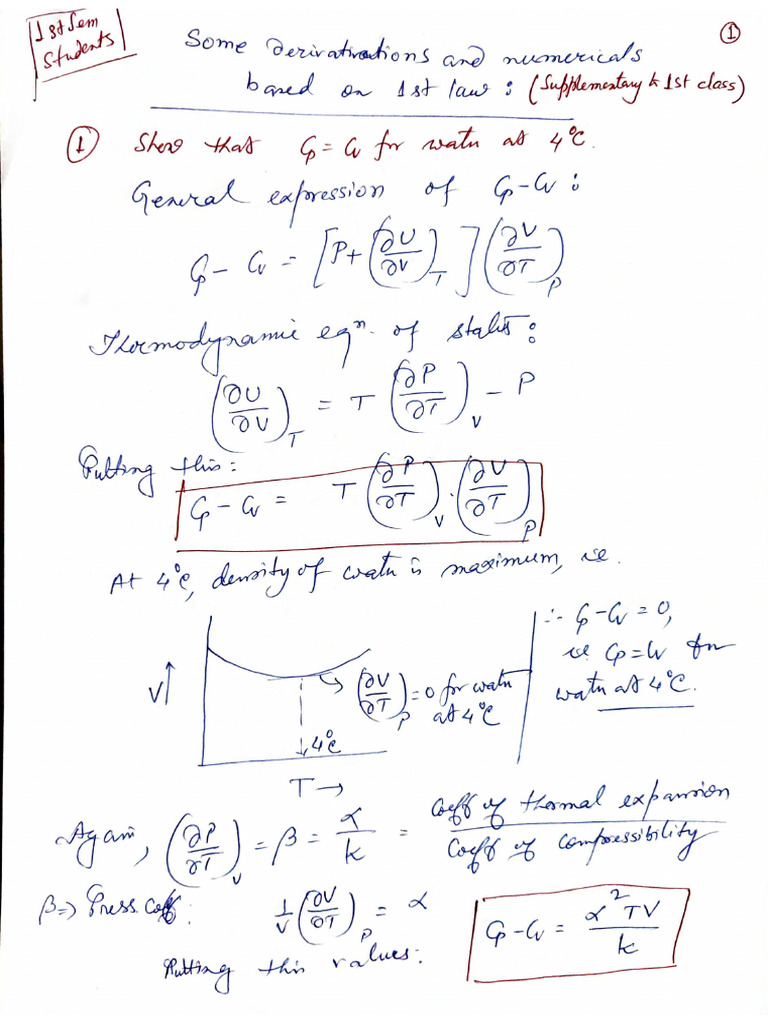 1st Sem
Students
①
Some derivations and numericals
based on 1st law : (Supplementary to 1st class)
① Show that Cp = Cv for water at 4°C.
General expression of Cp-Cv :
Cp - Cv = [P+(∂U/∂V)_T](∂V/∂T)_P
Thermodynamic eqⁿ. of state :
(∂U/∂V)_T = T (∂P/∂T)_V - P
Putting this :
Cp - Cv = T (∂P/∂T)_V . (∂V/∂T)_P
At 4°C, density of water is maximum, i.e.
V↑
(∂V/∂T)_P = 0 for water
at 4°C
4°C
T →
∴ Cp-Cv = 0,
i.e Cp = Cv for
water at 4°C.
Again, (∂P/∂T)_V = β = α/k = Coeff of thermal expansion / Coeff of compressibility
β => Press. Coeff : 1/V (∂V/∂T)_P = α
Putting this values :
Cp-Cv = α²TV/k